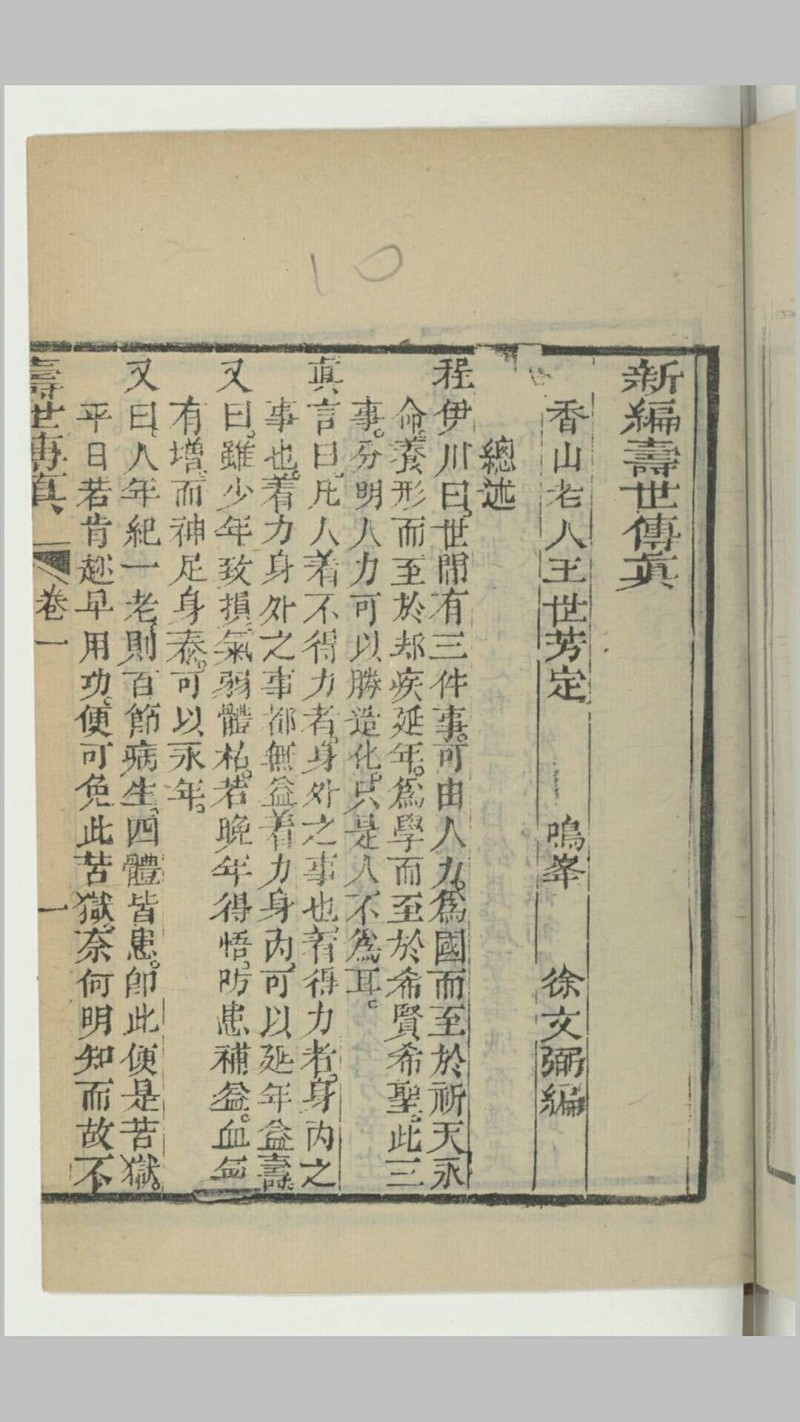 新編壽世傳真
香山老人王世芳定　鳴峯　徐文弼編
總述
程伊川曰。世間有三件事。可由人力。爲國而至於祈天永
命。養形而至於却疾延年。爲學而至於希賢希聖。此三
事。分明人力可以勝造化。只是人不爲耳。
真言曰。凡人着不得力者。身外之事也。着得力者。身内之
事也。着力身外之事都無益。着力身内。可以延年益壽
又曰。雖少年致損。氣弱體枯。若晚年得悟。防患補益。血氣
有增。而神足身泰。可以永年。
又曰。人年紀一老。則百節病生。四體皆患。卽此便是苦獄。
平日若肯趂早用功。便可免此苦獄。奈何明知而故不
壽世傳真 卷一 一
10